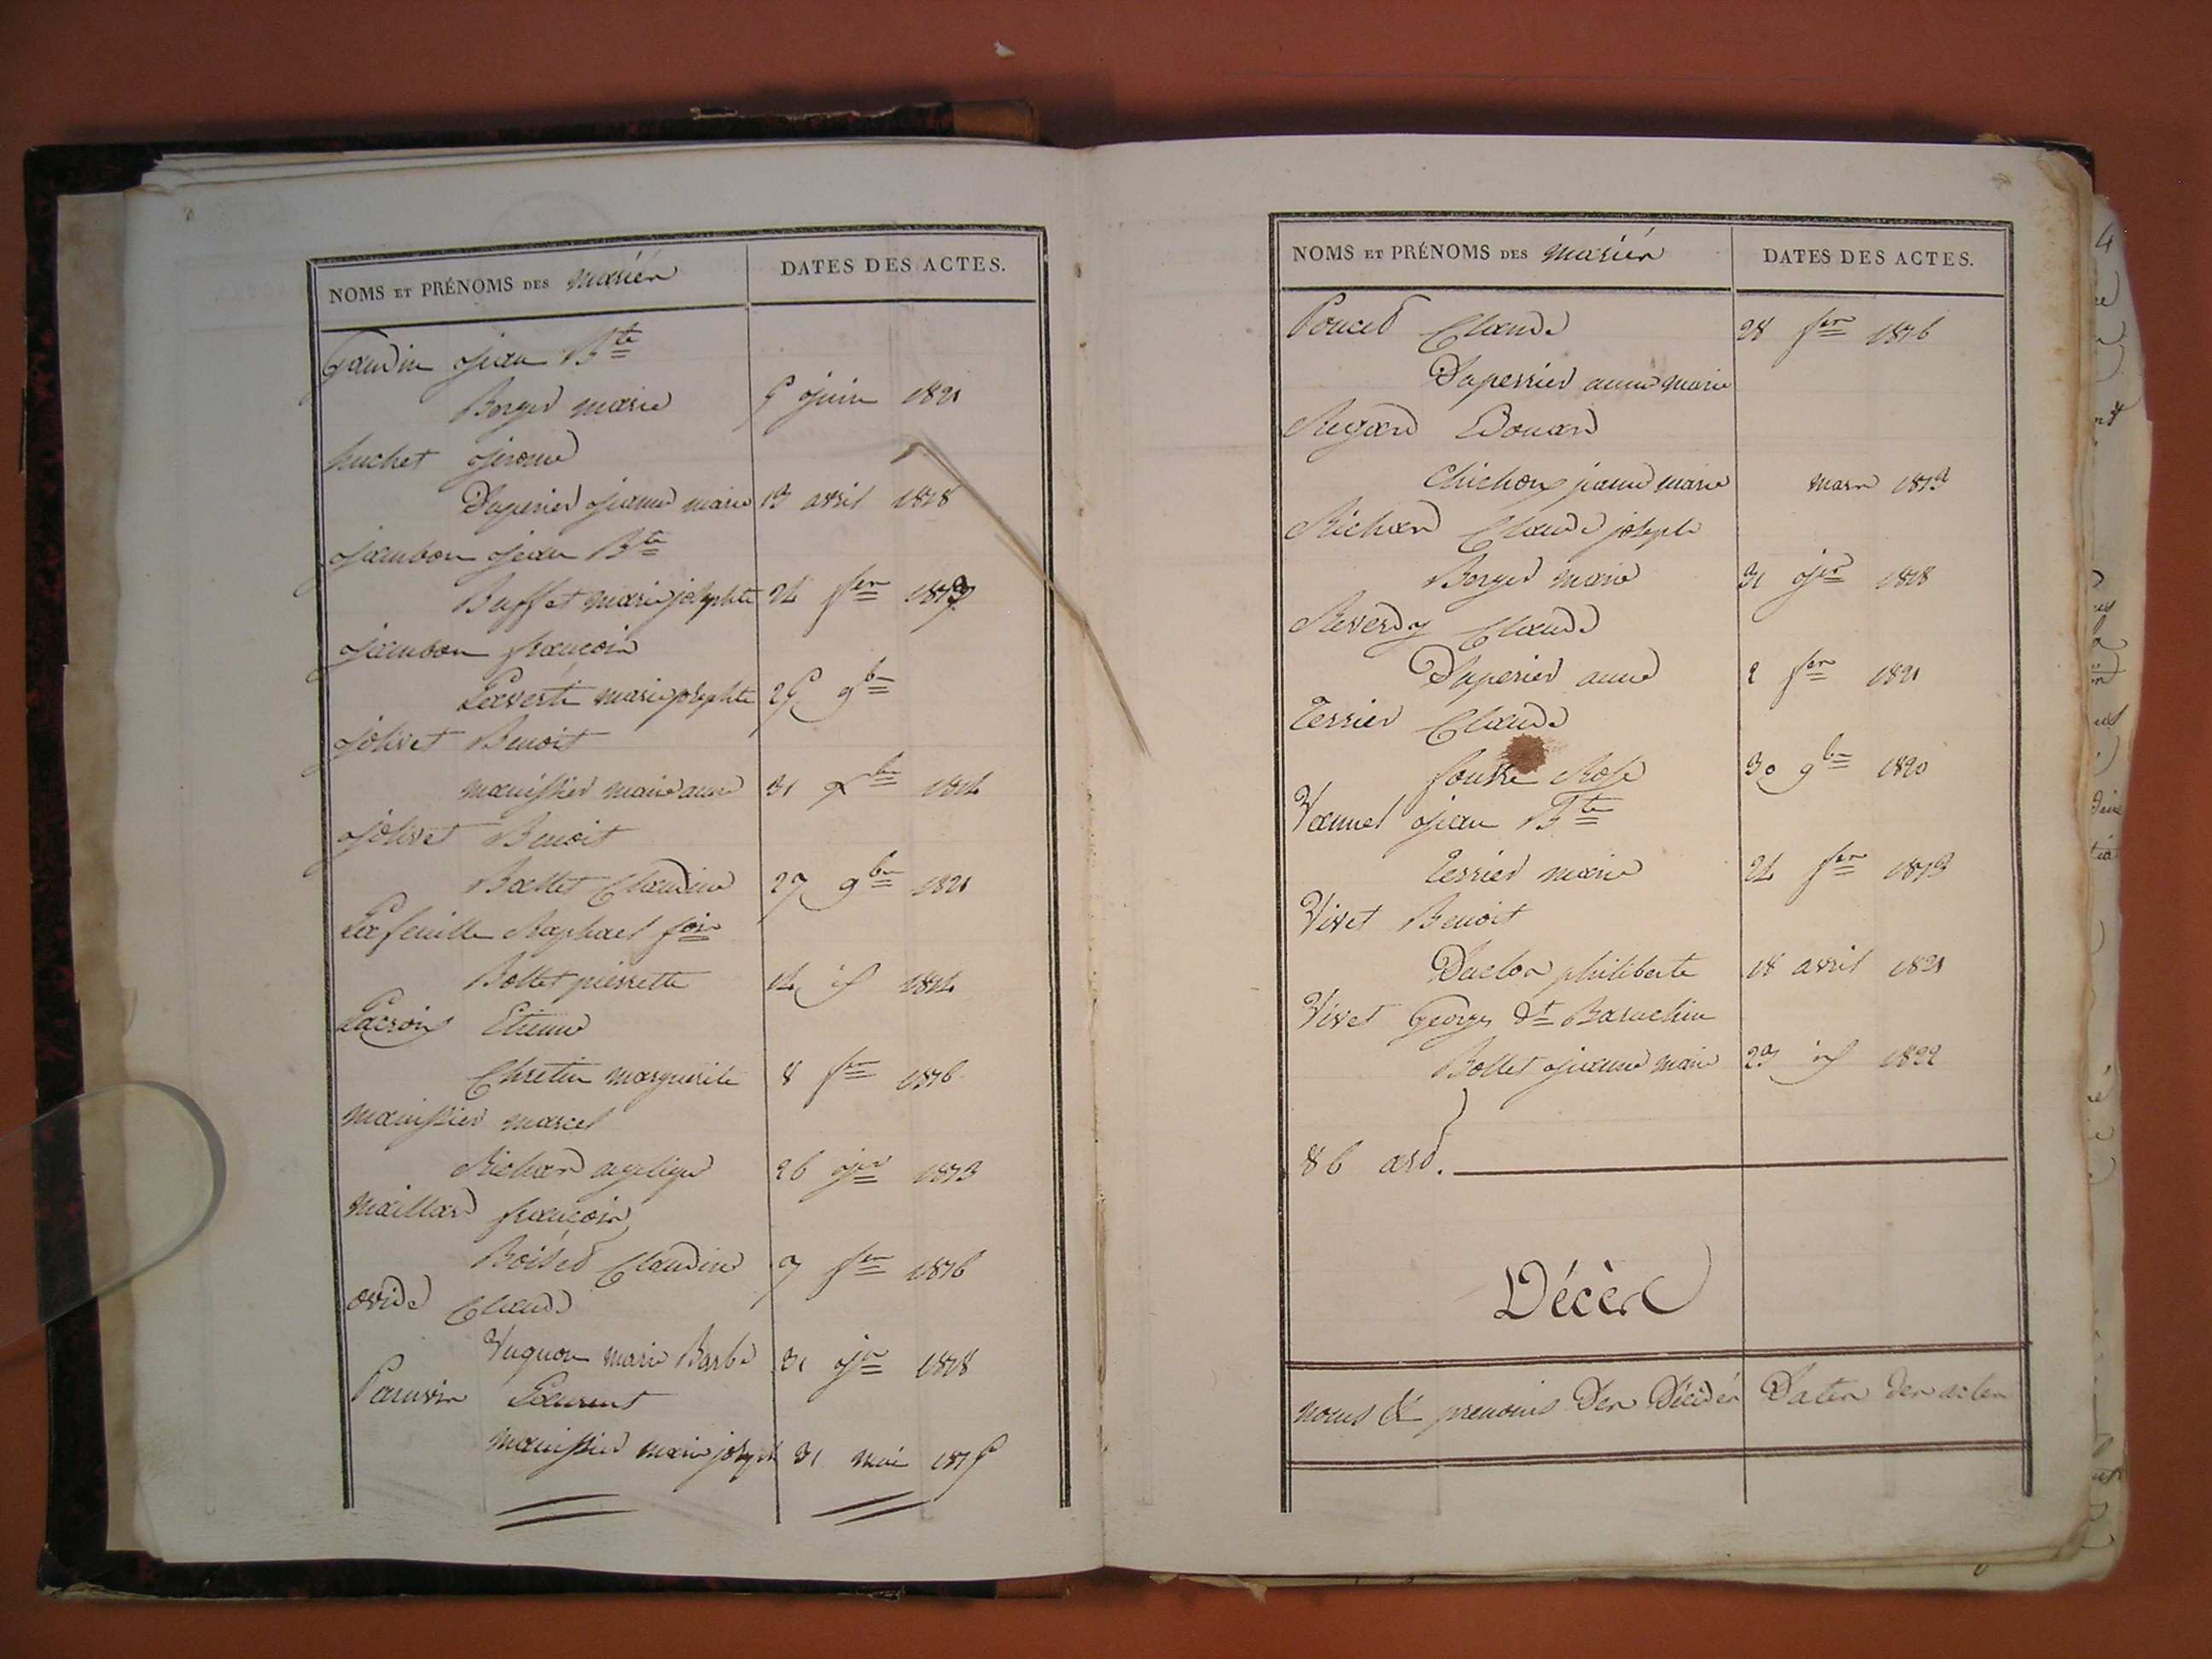 NOMS ET PRÉNOMS DES mariés DATES DES ACTES.
Gaudin Jean Bte
Berger marie 5 juin 1821
huchet Jerome
Duperier Jeanne marie 13 avril 1818
Jambon Jean Bte
Buffet marie josephte 24 fer 1813
Jambon francois
Laverti marie josephte 25 9bre
Jolivet Benoit
manissier marie anne 31 Xbre 1814
Jolivet Benoit
Ballet Claudine 27 9bre 1821
Lafeuille Raphael fois
Bollet pierrette 14 id 1814
Lacroix Etienne
Chretin marguerite 8 fer 1816
manissier marcel
Richard 26 jer 1813
Maillard francois
Claudine 7 fer 1816
ovide Claude
Vuquon marie Barbe 31 jer 1818
Laurent
manissier marie joseph 31 mai 1815
NOMS ET PRÉNOMS DES mariés DATES DES ACTES.
Poncet Claude 28 fer 1816
Duperrier anne marie
Regard Edouard
Chichoux jeanne marie mars 1813
Richard Claude joseph
Berger marie 31 jer 1818
Reverdy Claude
Duperier anne 2 fer 1821
Terrier Claude
Rose 30 9bre 1820
Vannel Jean Bte
Terrier marie 24 fer 1813
Vivet Benoit
Duclos philiberte 18 avril 1821
Vivet Georges dt Baruchin
Bollet Jeanne marie 23 id 1822
86 art.
Décès
noms & prenoms Des Décédés Dates des actes